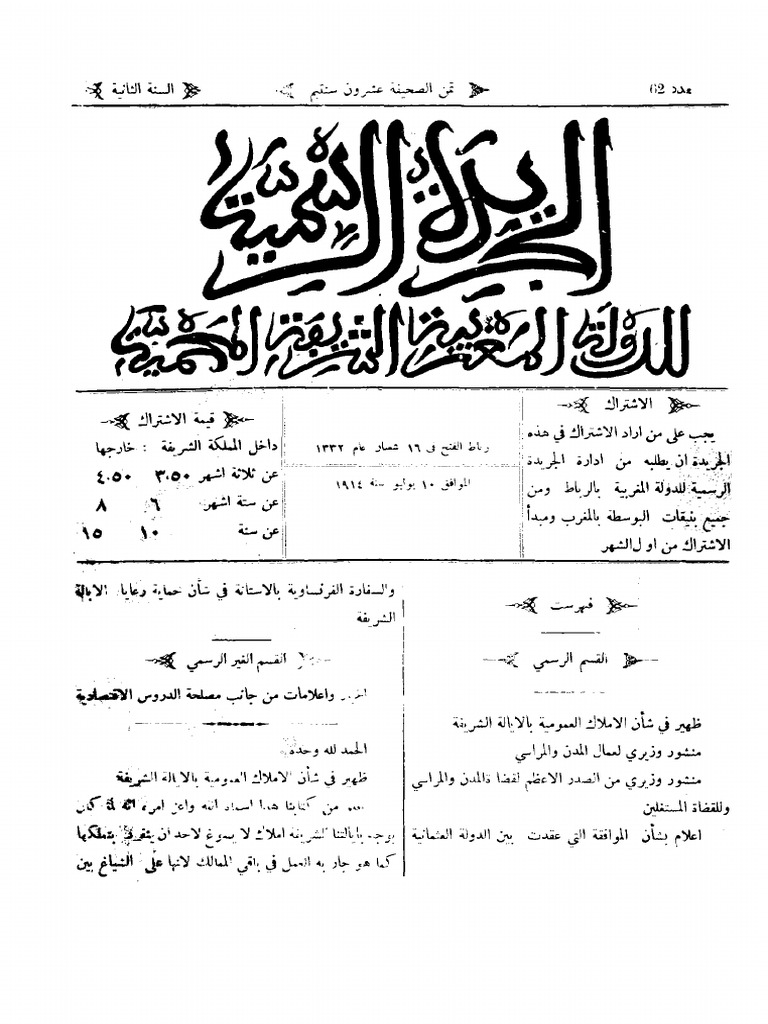 عدد 62
ثمن الصحيفة عشرون سنتيم
السنة الثانية
الجريدة الرسمية
للدولة المغربية الشريفة المحمية
الاشتراك
يجب على من اراد الاشتراك في هذه
الجريدة ان يطلبه من ادارة الجريدة
الرسمية للدولة المغربية بالرباط ومن
جميع بنيقات البوسطة بالمغرب ومبدأ
الاشتراك من اول الشهر
رباط الفتح في ١٦ شعبان عام ١٣٣٢
الموافق ١٠ يوليو سنة ١٩١٤
قيمة الاشتراك
داخل المملكة الشريفة : خارجها
عن ثلاثة اشهر ٣٬٥٠ ٤٬٥٠
عن ستة اشهر ٦ ٨
عن سنة ١٠ ١٥
فهرست
القسم الرسمي
ظهير في شأن الاملاك العمومية بالايالة الشريفة
منشور وزيري لعمال المدن والمراسي
منشور وزيري من الصدر الاعظم لقضاة المدن والمراسي
وللقضاة المستقلين
اعلام بشأن الموافقة التي عقدت بين الدولة العثمانية
والسفارة الفرنساوية بالاستانة في شأن حماية رعايا الايالة
الشريفة
القسم الغير الرسمي
واعلامات من جانب مصلحة الدروس الاقتصادية
الحمد لله وحده
ظهير في شأن الاملاك العمومية بالايالة الشريفة
من كتابنا هذا اسماه الله واعز امره انه لما كان
يوجد بايالتنا الشريفة املاك لا يسوغ لاحد ان ينفرد بتملكها
كما هو جار به العمل في باقي الممالك لانها على الشياع بين